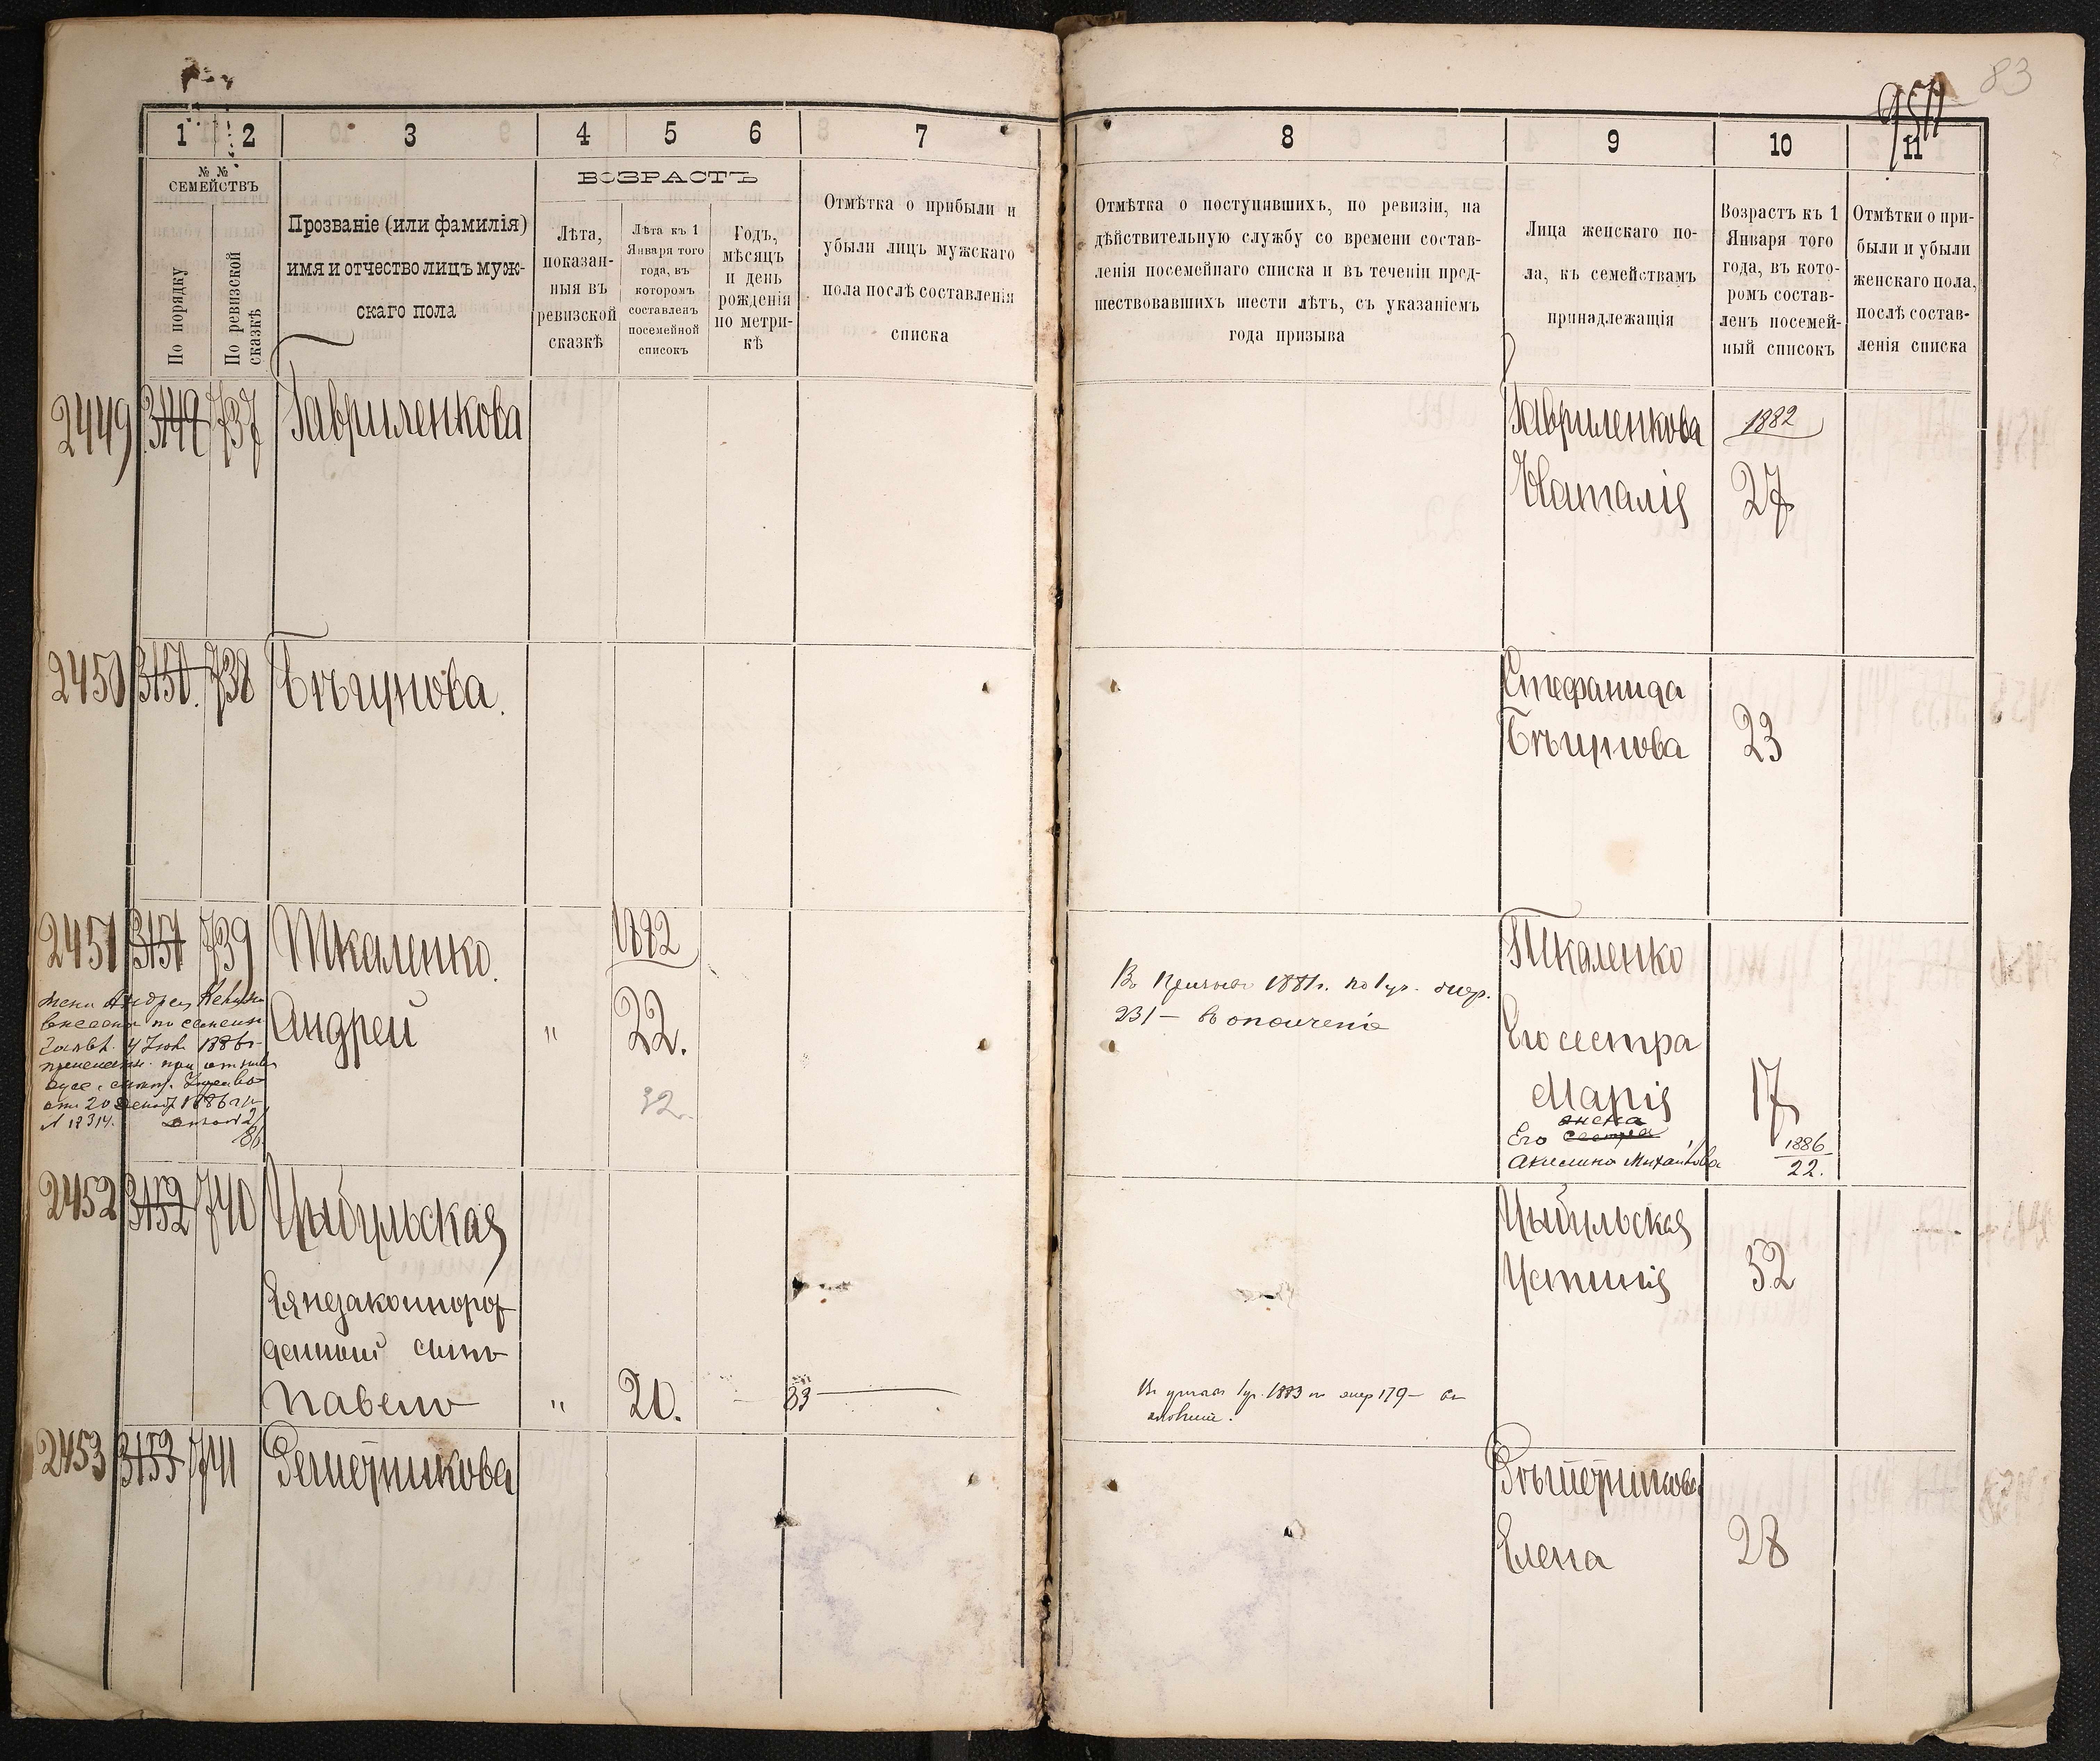 83
1 2 3 4 5 6 7
№ №
СЕМЕЙСТВЪ
По порядку
По ревизской
сказкѣ
Прозваніе (или фамилія)
имя и отчество лицъ муж-
скаго пола
ВОЗРАСТЪ
Лѣта,
показан-
ныя въ
ревизской
сказкѣ
Лѣта къ 1
Января того
года, въ
которомъ
составленъ
посемейной
списокъ
Годъ,
мѣсяцъ
и день
рожденія
по метри-
кѣ
Отмѣтка о прибыли и
убыли лицъ мужскаго
пола послѣ составленія
списка
8 9 10 11
Отмѣтка о поступившихъ, по ревизіи, на
дѣйствительную службу со времени состав-
ленія посемейнаго списка и въ теченіи пред-
шествовавшихъ шести лѣтъ, съ указаніемъ
года призыва
Лица женскаго по-
ла, къ семействамъ
принадлежащія
Возрастъ къ 1
Января того
года, въ кото-
ромъ состав-
ленъ посемей-
ный списокъ
Отмѣтки о при-
были и убыли
женскаго пола,
послѣ состав-
ленія списка
2449 3149 737 Гавриленкова
Гавриленкова 1882
Наталія 27
2450 3150. 738 Бѣгунова.
Стефанида
Бѣгунова 23
2451 3151 739 Ткаленко. 1882
Андрей " 22.
32.
жена Андрея
1886
от 20 1886 г.
№ 12314.
1881 г.
231 — въ ополченіе
Ткаленко
Его сестра
Марія 17
жена
Его сестра 1886
Акилина Михайлова 22.
2452 3152 740 Цыбульская
Ея незаконнорож
денный сынъ
Павелъ " 20. 83
1883 179 —
Цыбульская
Устинія 52
2453 3153 741 Решетникова
Рѣшетникова
Елена 28